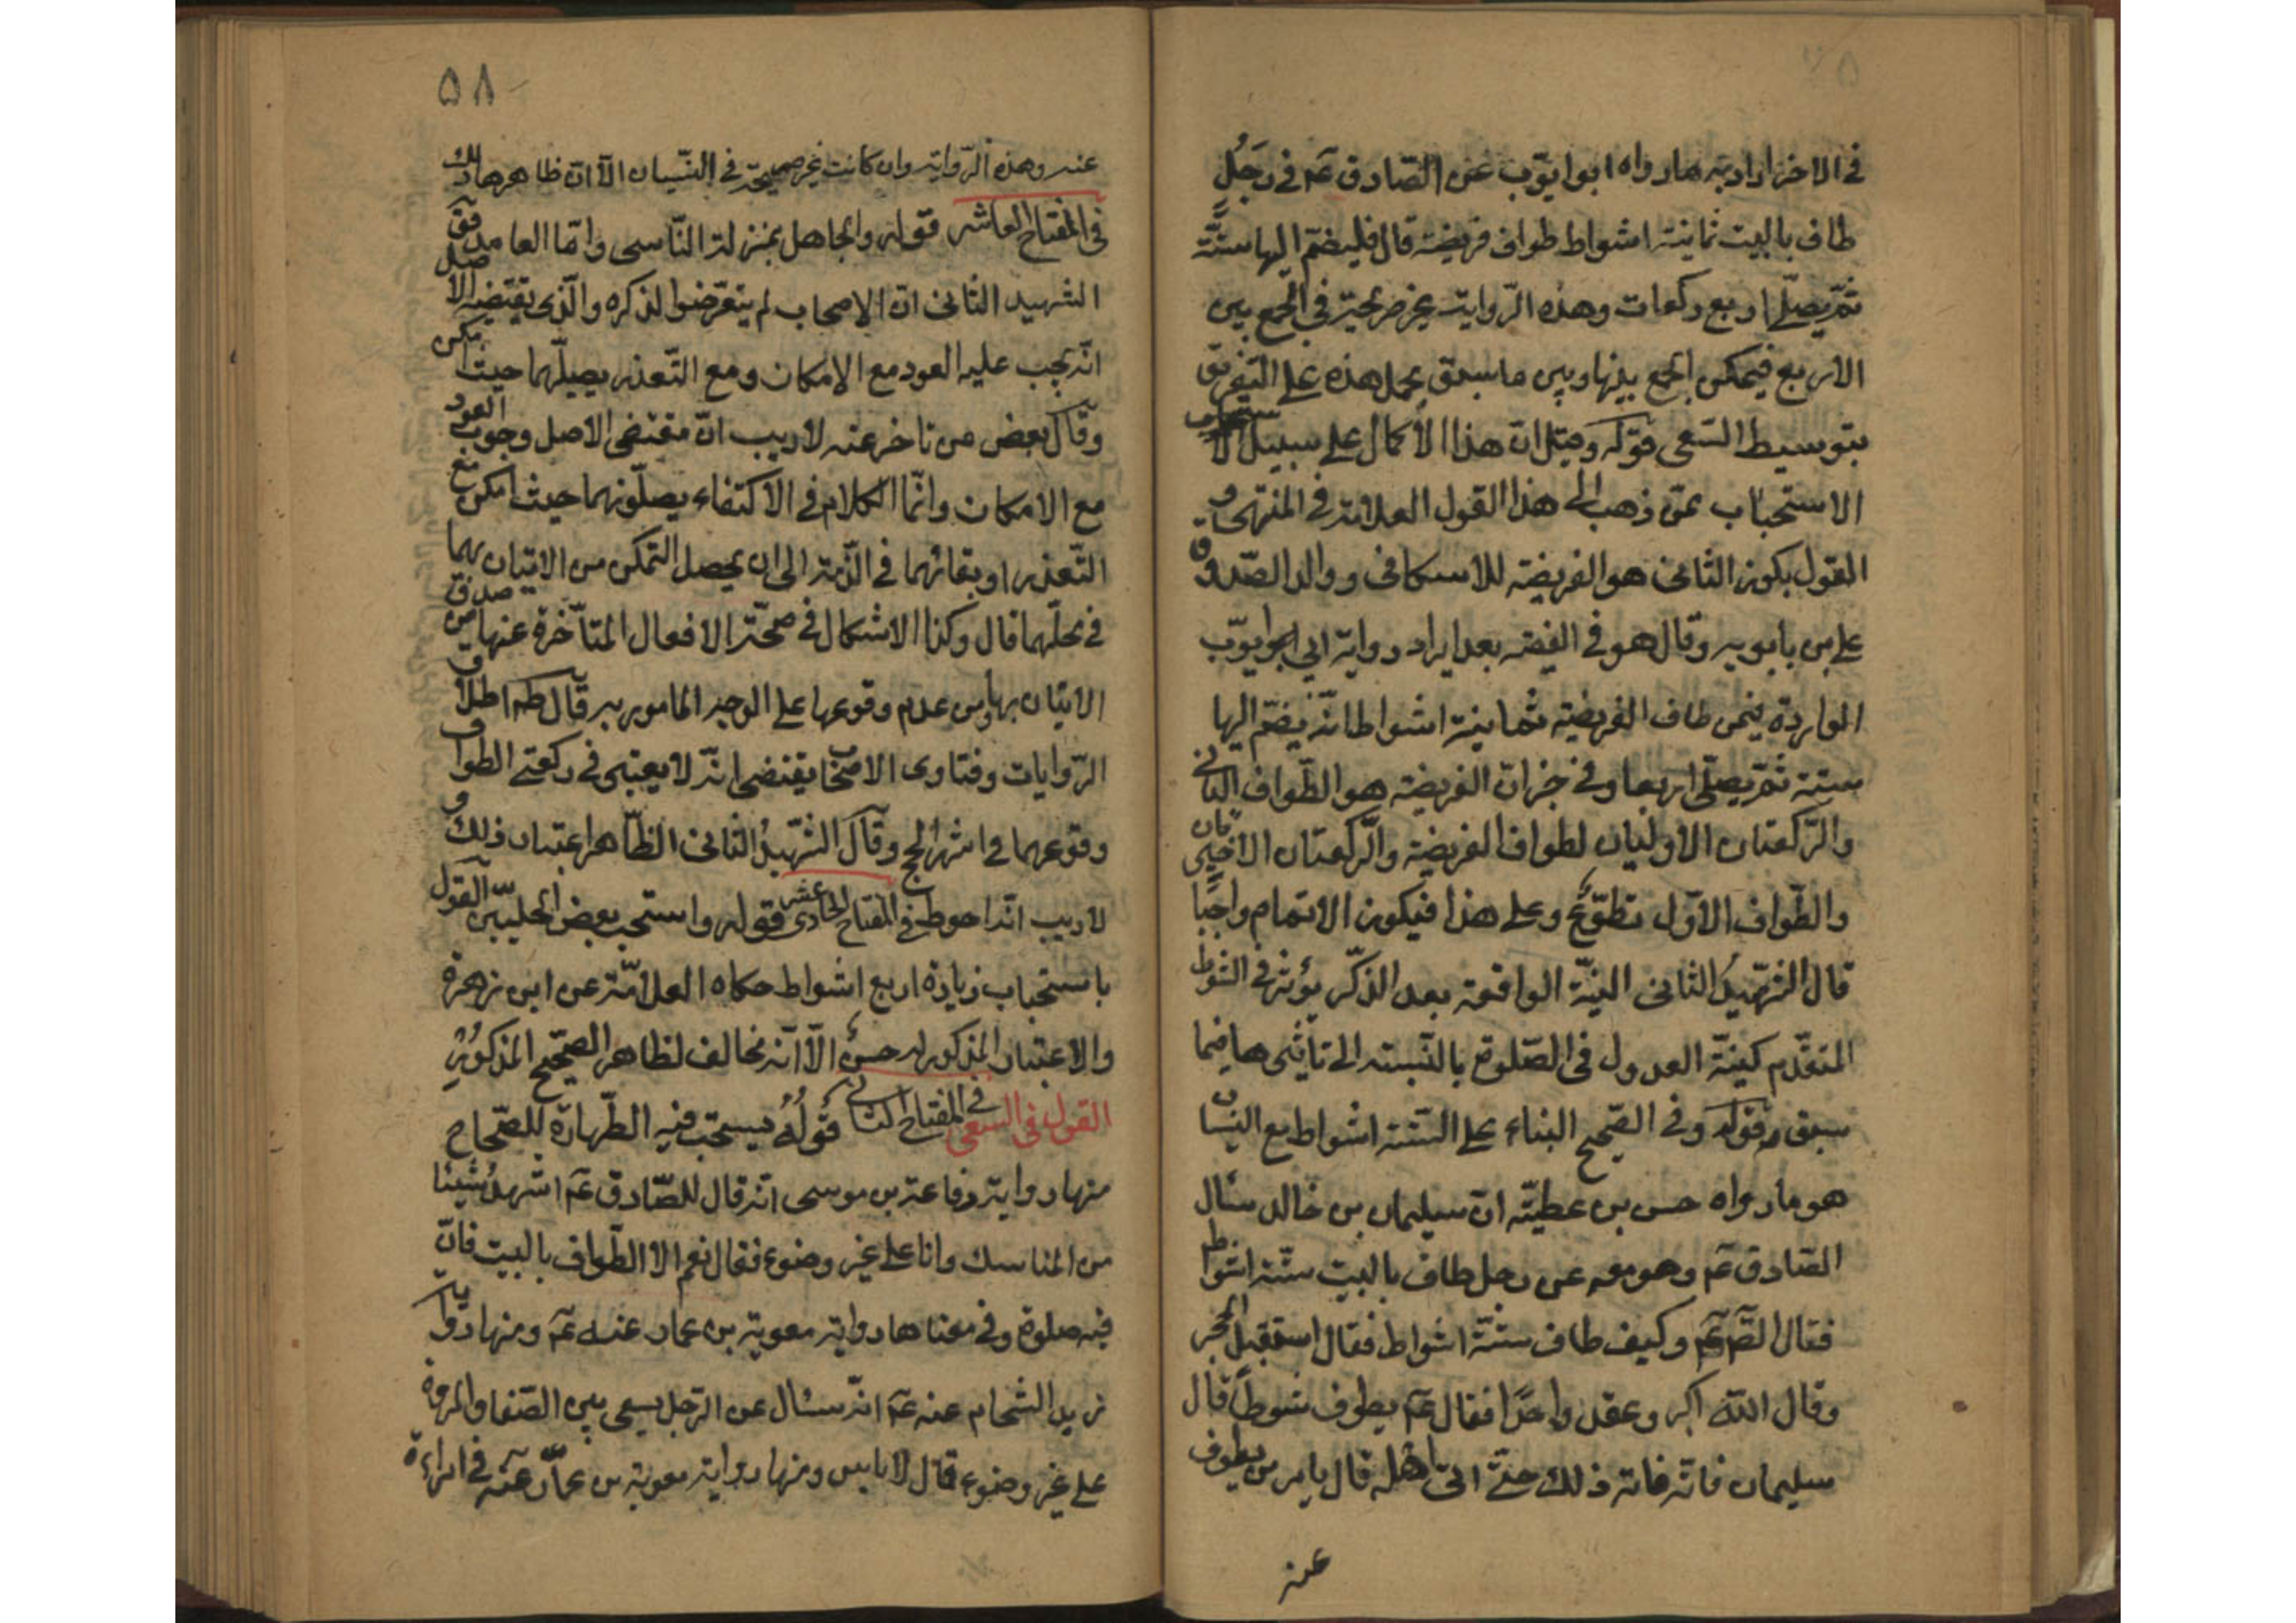 في الاخر اراد به ما رواه ابو ايوب عن الصّادق عم في رَجُلٍ
طاف بالبيت ثمانية اشواط طواف فريضة قال فليضمّ اليها ستَّة
ثمّ يصلّي اربع ركعات وهذه الرّواية غير صريحة في الجمع بين
الاربع فيمكن الجمع بينها وبين ما سبق بحمل هذه على التفريق
بتوسيط السّعي قوله وقيل ان هذا الاكمال على سبيل
الاستحباب ممّن ذهب الى هذا القول العلامة في المنتهى و
القول بكون الثاني هو الفريضة للاسكافي ووالد الصّدوق
علي بن بابويه وقال هو في الفقيه بعد ايراد رواية ابي ايوّب
الواردة فيمن طاف الفريضة ثمانية اشواط انّه يضمّ اليها
ستة ثمّ يصلّي اربعا وفي خبر انّ الفريضة هو الطّواف الثاني
والرّكعتان الاوليان لطواف الفريضة والرّكعتان الاخيرتان
والطّواف الاوّل تطوّعٌ وعلى هذا فيكون الاتمام واجبًا
قال الشّهيدُ الثاني النيّة الواقعة بعد الذكّر يؤثر في الشوط
المتقدّم كنيّة العدول في الصّلوة بالنّسبته الى تاثيرها فيما
سبق منه قوله وفي الصّحيح البناء على الستّة اشواط مع النيسان
هو ما رواه حسن بن عطيّة انّ سليمان بن خالد سئال
الصّادق عم وهو معه عن رجل طاف بالبيت ستّة اشواط
فقال الصّم عم وكيف طاف ستّة اشواط فقال استقبل الحجر
وقال الله اكبر وعقد واحدًا فقال عم يطوف شوطاً قال
سليمان فانّه فاته ذلك حتّى اتى اهله قال يامر من يطوف
عنه
٥٨
عنه وهذه الرّواية وان كانت غير صحيحة في النّسيان الّا انّ ظاهرها ذلك
في المفتاح العاشر قوله والجاهل بمنزلة النّاسي وامّا العامد
الشهيد الثاني انّ الاصحاب لم يتعرّضوا لذكره والّذي يقتضيه الاصل
انّه يجب عليه العود مع الامكان ومع التّعذر يصلّيهما حيث امكن
وقال بعض من تاخر عنه لا ريب انّ مقتضى الاصل وجوب العود
مع الامكان وانّما الكلام في الاكتفاء بصلوتهما حيث امكن مع
التّعذر او بقائهما في الذّمة الى ان يحصل التمكن من الاتيان بهما
في محلّهما قال وكذا الاشكال في صحّة الافعال المتاخّرة عنها من صدق
الاتيان بها ومن عدم وقوعها على الوجه المامور به قال اطلاق
الرّوايات وفتاوى الاصحاب يقتضي انّه لا يعتبر في ركعتي الطواف
وقوعهما في اشهر الحج وقال الشّهيدُ الثاني الظّاهر اعتبار ذلك و
لا ريب انّه احوط في المفتاح الحادي عشر قوله واستحب بعض الحلبيّين القول
باستحباب زيادة اربع اشواط حكاه العلامّة عن ابن زهرة
والاعتبار المذكور له حسنٌ الّا انّه مخالف لظاهر الصّحيح المذكور
القول في السعي في المفتاح الثاني قوله يستحب فيه الطّهارة للصّحاح
منها رواية رفاعة بن موسى انّه قال للصّادق عم اشهدُ شيئا
من المناسك وانا على غير وضوء فقال نعم الا الطّواف بالبيت فانّ
فيه صلوة وفي معناها رواية معوية بن عمار عنه عم ومنها رواية
زيد الشحام عنه عم انّه سئال عن الرّجل يسعى بين الصّفا والمروة
على غير وضوء قال لا باس ومنها رواية معوية بن عمّار عنه في امراءة